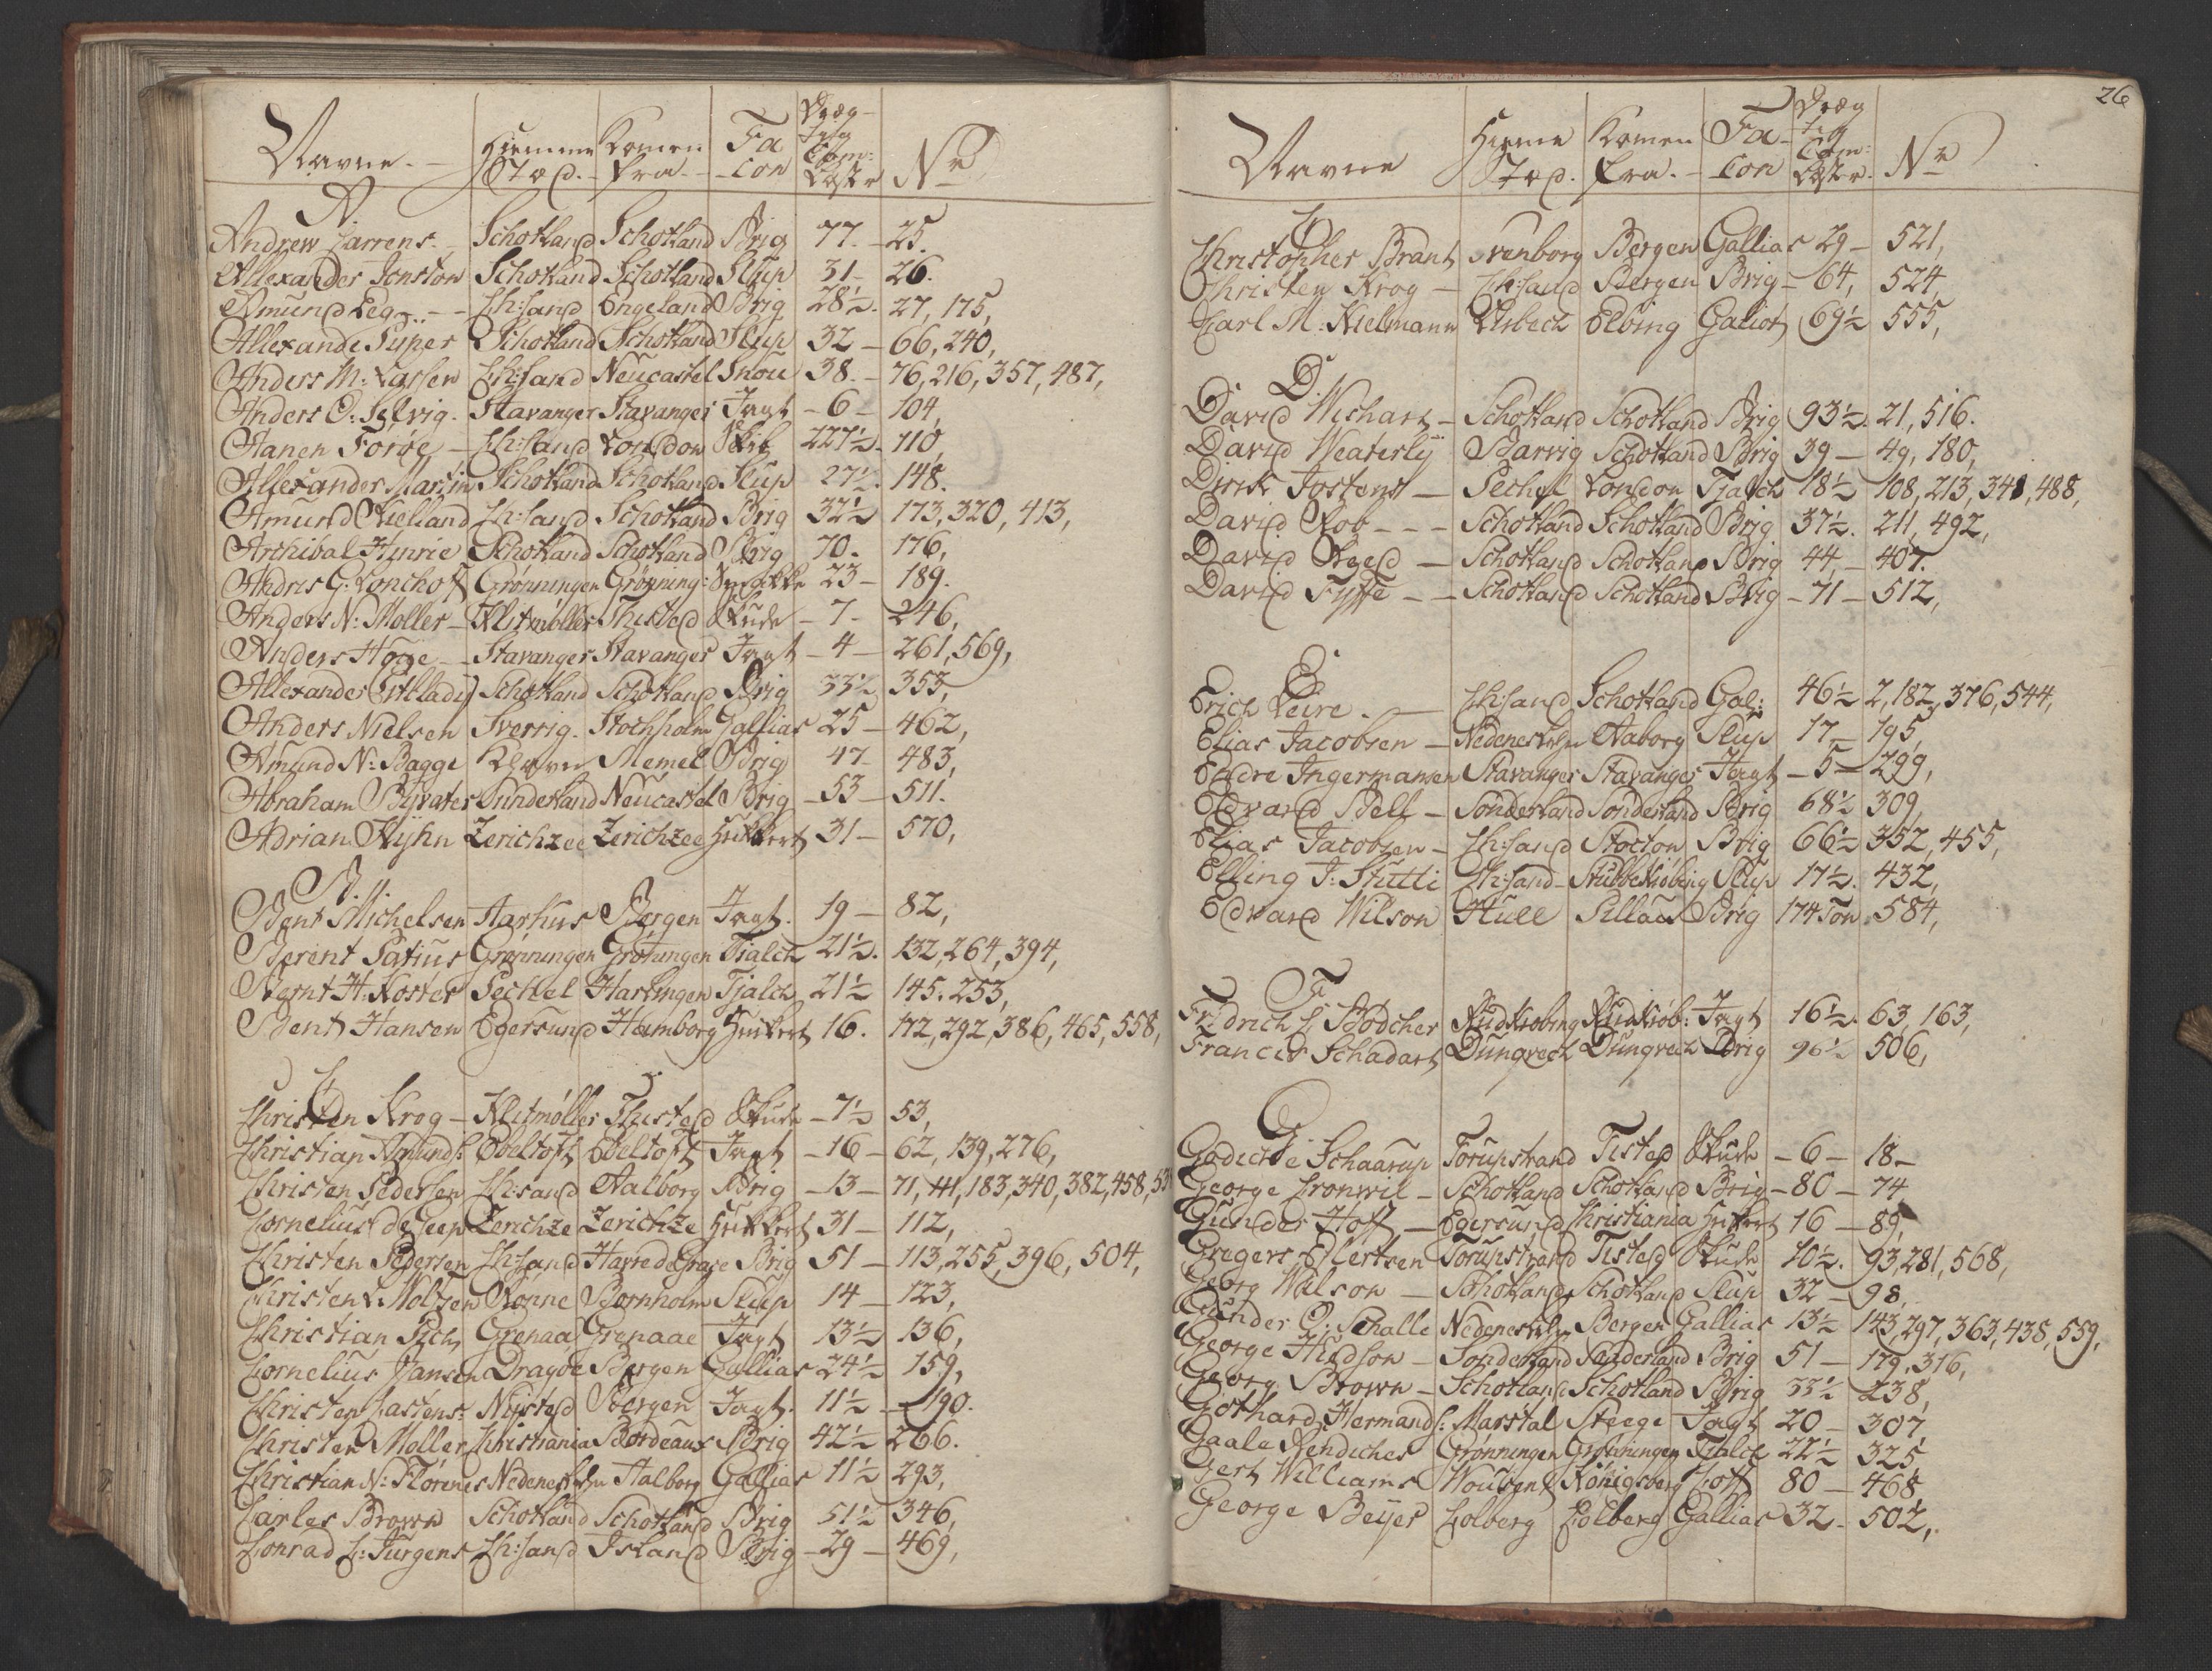 Navne. Hiemme Stæd. Komen fra. Fa con Dræg- tig Com: Læster No
A
Andrew Carrens. Schotland Schotland Brig 77. 25.
Allexander Jonston Schotland Schotland Slup 31 26.
Amund Eeg Ch:sand Engeland Brig 28½. 27, 175,
Allexande Piper Schotland Schotland Slup 32 66, 240,
Anders M: Larsen Ch:sand Neucastel Snou 38. 76, 216, 357, 487,
Anders O: Selvig. Stavanger Stavanger Jagt 6 104,
Aanen Forøe Ch:sand London Skib 227½. 110,
Allexander Martin Schotland Schotland Slup 27½. 148.
Amund Kielland Ch:sand Schotland Brig 32½ 173, 320, 413,
Archibal Henrie Schotland Schotland Brig 70. 176,
Andris G. Lonchoff Grønningen Grønning: 23 189.
Anders N: Møller Klitmøller Thisted Skude 7 246,
Anders Hoge Stavanger Stavanger Jagt 4 261, 569,
Allexander Schotland Schotland Brig 33½ 353,
Anders Nielsen Sverrig. Stochholm Gallias 25 462,
Amund N: Bagge Kleven Memel Brig 47 483,
Abraham Byvater Sunderland Neucastel Brig 53 511.
Adrian Kyhn Zerichzee Zerichzee Hukkert 31 570,
B.
Bent Michelsen Aarhus Bergen Jagt. 19 82,
Berent Patius Grønningen Grønningen Tialch 21½. 132, 264, 394,
Bernt H: Koster Pechel Harlingen Tjalch 21½ 145. 253,
Bent Hansen Egersund Hamborg Hukkert 16. 172, 292, 386, 465, 558,
C
Christen Krog Klitmøller Thisted Skude 7½ 53,
Christian Amunds: Ebeltoft Ebeltoft Jagt 16 62, 139, 276,
Christen Pedersen Ch:sand Aalborg Brig 13 71, 141, 183, 340, 382, 458, 53
Cornelius de Jeep Zerichze Zerichze Hukkert 31 112,
Christen Pedersen Ch:sand Havre de Grace Brig 51 113, 255, 396, 504,
Christen L: Moltzen Rønne Bornholm Slup 14 123,
Christian Pich Grenaa Grenaae Jagt 13½ 136,
Cornelius Jansen Dragøe Bergen Gallias 24½ 159,
Christen Carstens: Nysted Bergen Jagt. 11½ 190.
Christen Møller Christiania Bordeaux Brig 42½ 266.
Christian N: Flørenes Aalborg Gallias 11½ 293,
Carles Brown Schotland Schotland Brig 51½ 346,
Conrad C: Jurgens Ch:sand Island Brig 29 469,
26
Navne Hieme Stæd. Komen fra. Fa- con Dræg tig Com: Læster. No
C
Christopher Brant Svenborg Bergen Gallias 29 521,
Christen Krog Ch:sand Bergen Brig 64, 524,
Carl M: Kielmann Lybech Elbing Galiot 69½ 555,
D.
David Wichart Schotland Schotland Brig 93½. 21, 516.
David Weaterly Barvig Schotland Brig 39 49, 180,
Dirik Jostens Pechel London Tjalch 18½ 108, 213, 348, 488,
David Rob Schotland Schotland Brig 37½. 211, 492,
David Reed Schotland Schotland Brig 44 407.
David Fyffe Schotland Schotland Brig 71 512,
E
Erich Leire. Ch:sand Schotland Gal: 46½ 2, 182, 376, 544,
Elias Jacobsen Aaborg Slup 17 195,
Endre Ingermansen Stavanger Stavanger Jagt 5 299,
Edvard Bell Sonderland Sonderland Brig 68½ 309,
Elias Jacobsen Ch:sand Stocton Brig 66½ 352, 455,
Elling J. Stutti Ch:sand Stubbekiøbing Slup 17½. 432,
Edvard Wilson Hull Pillau Brig 174 Ton 584,
F
Fridrich C: Bødcher Rudkiøbing Rudkiøb: Jagt 16½. 63, 163,
Francis Schadart Dunqvech Dunqvech Brig 96½ 506,
G
Godiche Schaarup Torupstrand Tisted Skude 6 18
George Cronwil Schotland Schotland Brig 80 74
Gunder Hoff Egersund Christiania Hukert 16 89,
Gregers Eilertsen Torupstrand Tisted Skude 10½. 93, 281, 568,
Georg Wilson Schotland Schotland Slup 32 98.
Gunder O: Schalle Bergen Gallias 13½ 143, 297, 363, 438, 559,
George Hudson Sonderland Sonderland Brig 51 179, 316,
Georg Brown Schotland Schotland Brig 33½ 238,
Gothard Hermands: Marstal Steege Jagt 20 307,
Gaale Rendiches Grønningen Grønningen Tialch 22½ 325,
Gert Williams Königsberg Coff 80 468
George Beyer Colberg Colberg Gallias 32 502,